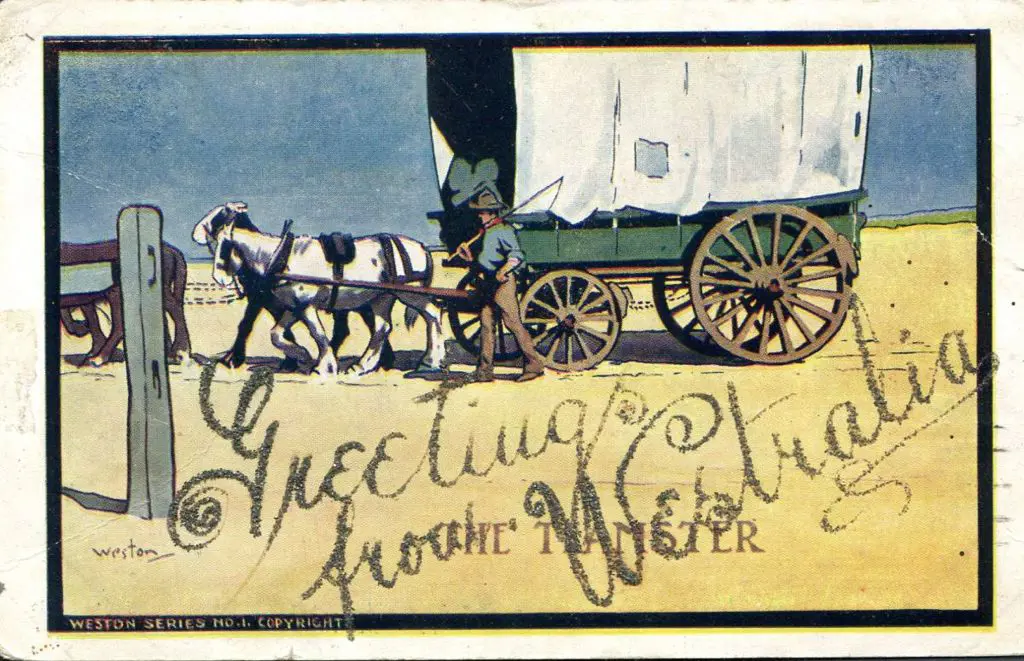 Greetings
from Westralia
THE TEAMSTER
Weston
WESTON SERIES NO.1. COPYRIGHT